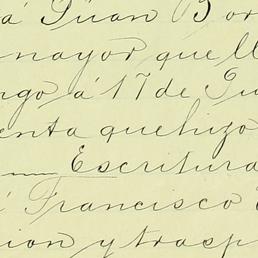 á Juan B or
mayor que ll
ngo á 17 de Ju
enta que hizo
Escritura
á Francisco
ion y trasp